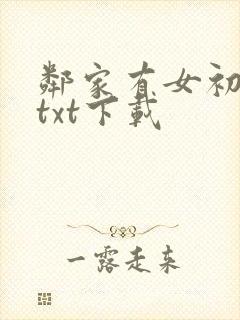 鄰家有女初
txt下載
一露走来